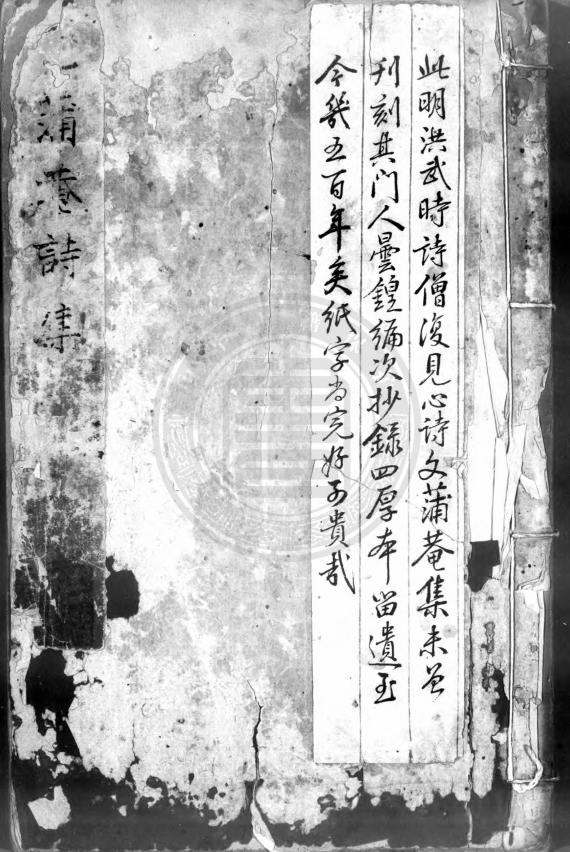 此明洪武時詩僧復見心詩文蒲菴集未曾
刊刻其門人曇鍠編次抄錄四厚本留遺至
今幾五百年矣紙字尚完好可貴哉
蒲菴詩集